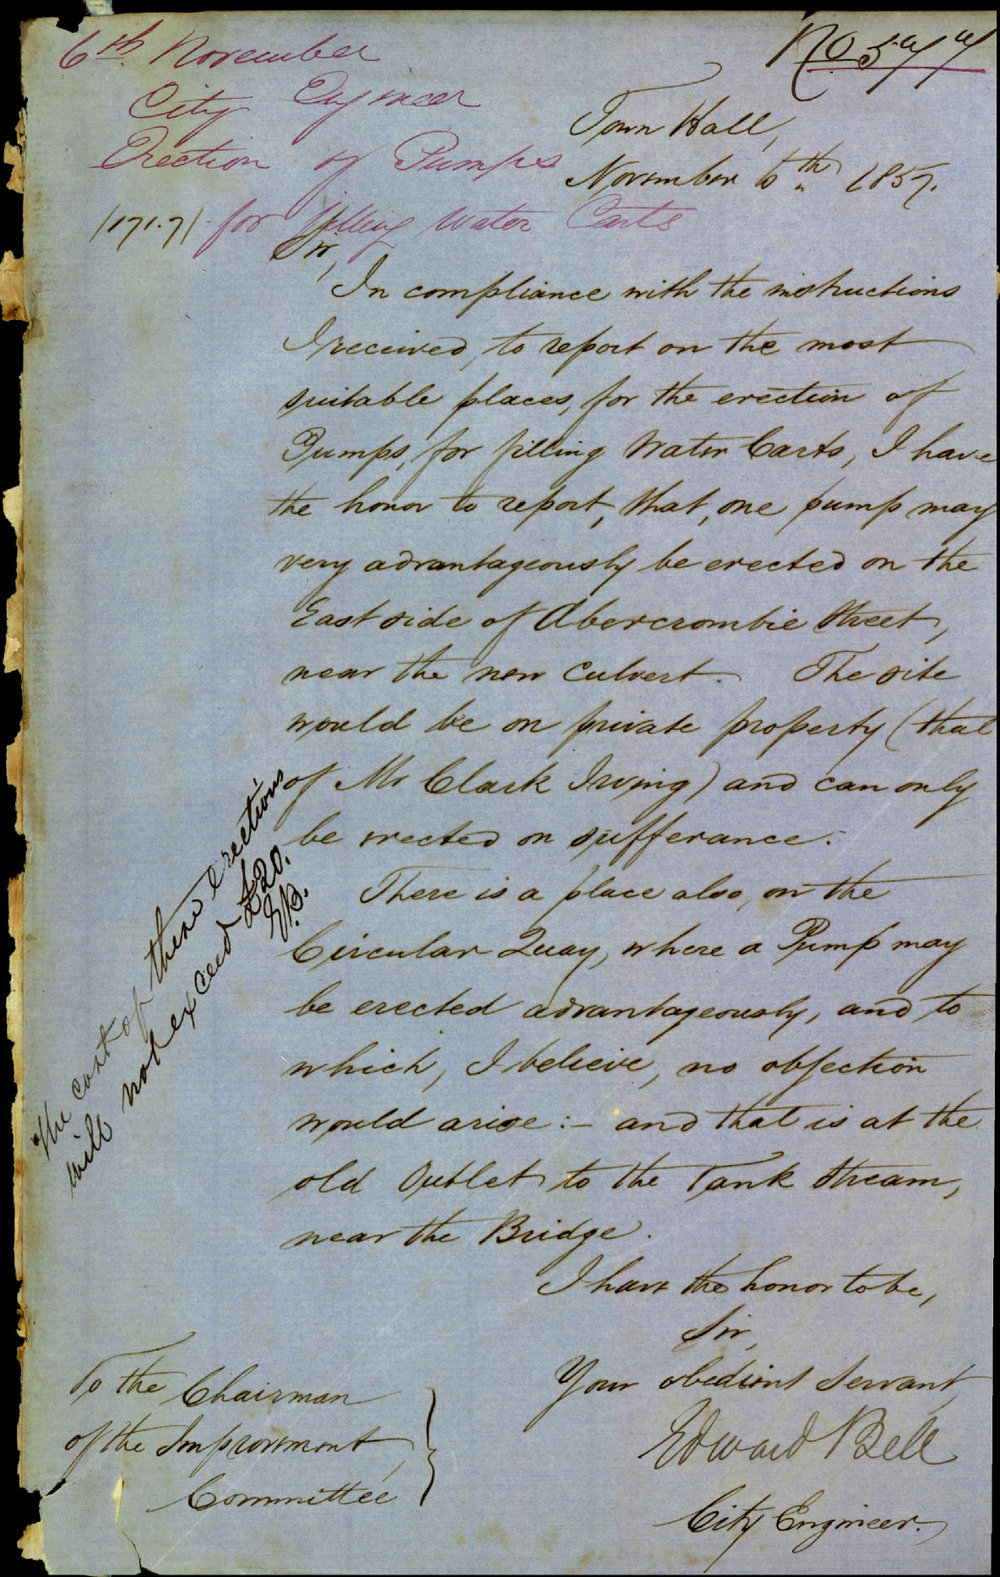 6th. November
City Engineer
Erection of Pumps
for filling Water Carts
/171.7/
No 577
Town Hall,
November 6th 1857.
Sir,
In compliance with the instructions
I received, to report on the most
suitable places, for the erection of
Pumps, for filling Water Carts, I have
the honor to report, that, one pump may
very advantageously be erected on the
East side of Abercrombie Street,
near the new Culvert. The site
would be on private property (that
of Mr Clark Irving) and can only
be erected on sufferance.
There is a place also, on the
Circular Quay, where a Pump may
be erected advantageously, and to
which, I believe, no objection
would arise :- and that is at the
old Outlet to the Tank Stream,
near the Bridge.
I have the honor to be,
Sir,
Your obedient Servant
Edward Bell
City Engineer.
To the Chairman
of the Improvement
Committee
The cost of these erections
will not exceed £20.
E.B.